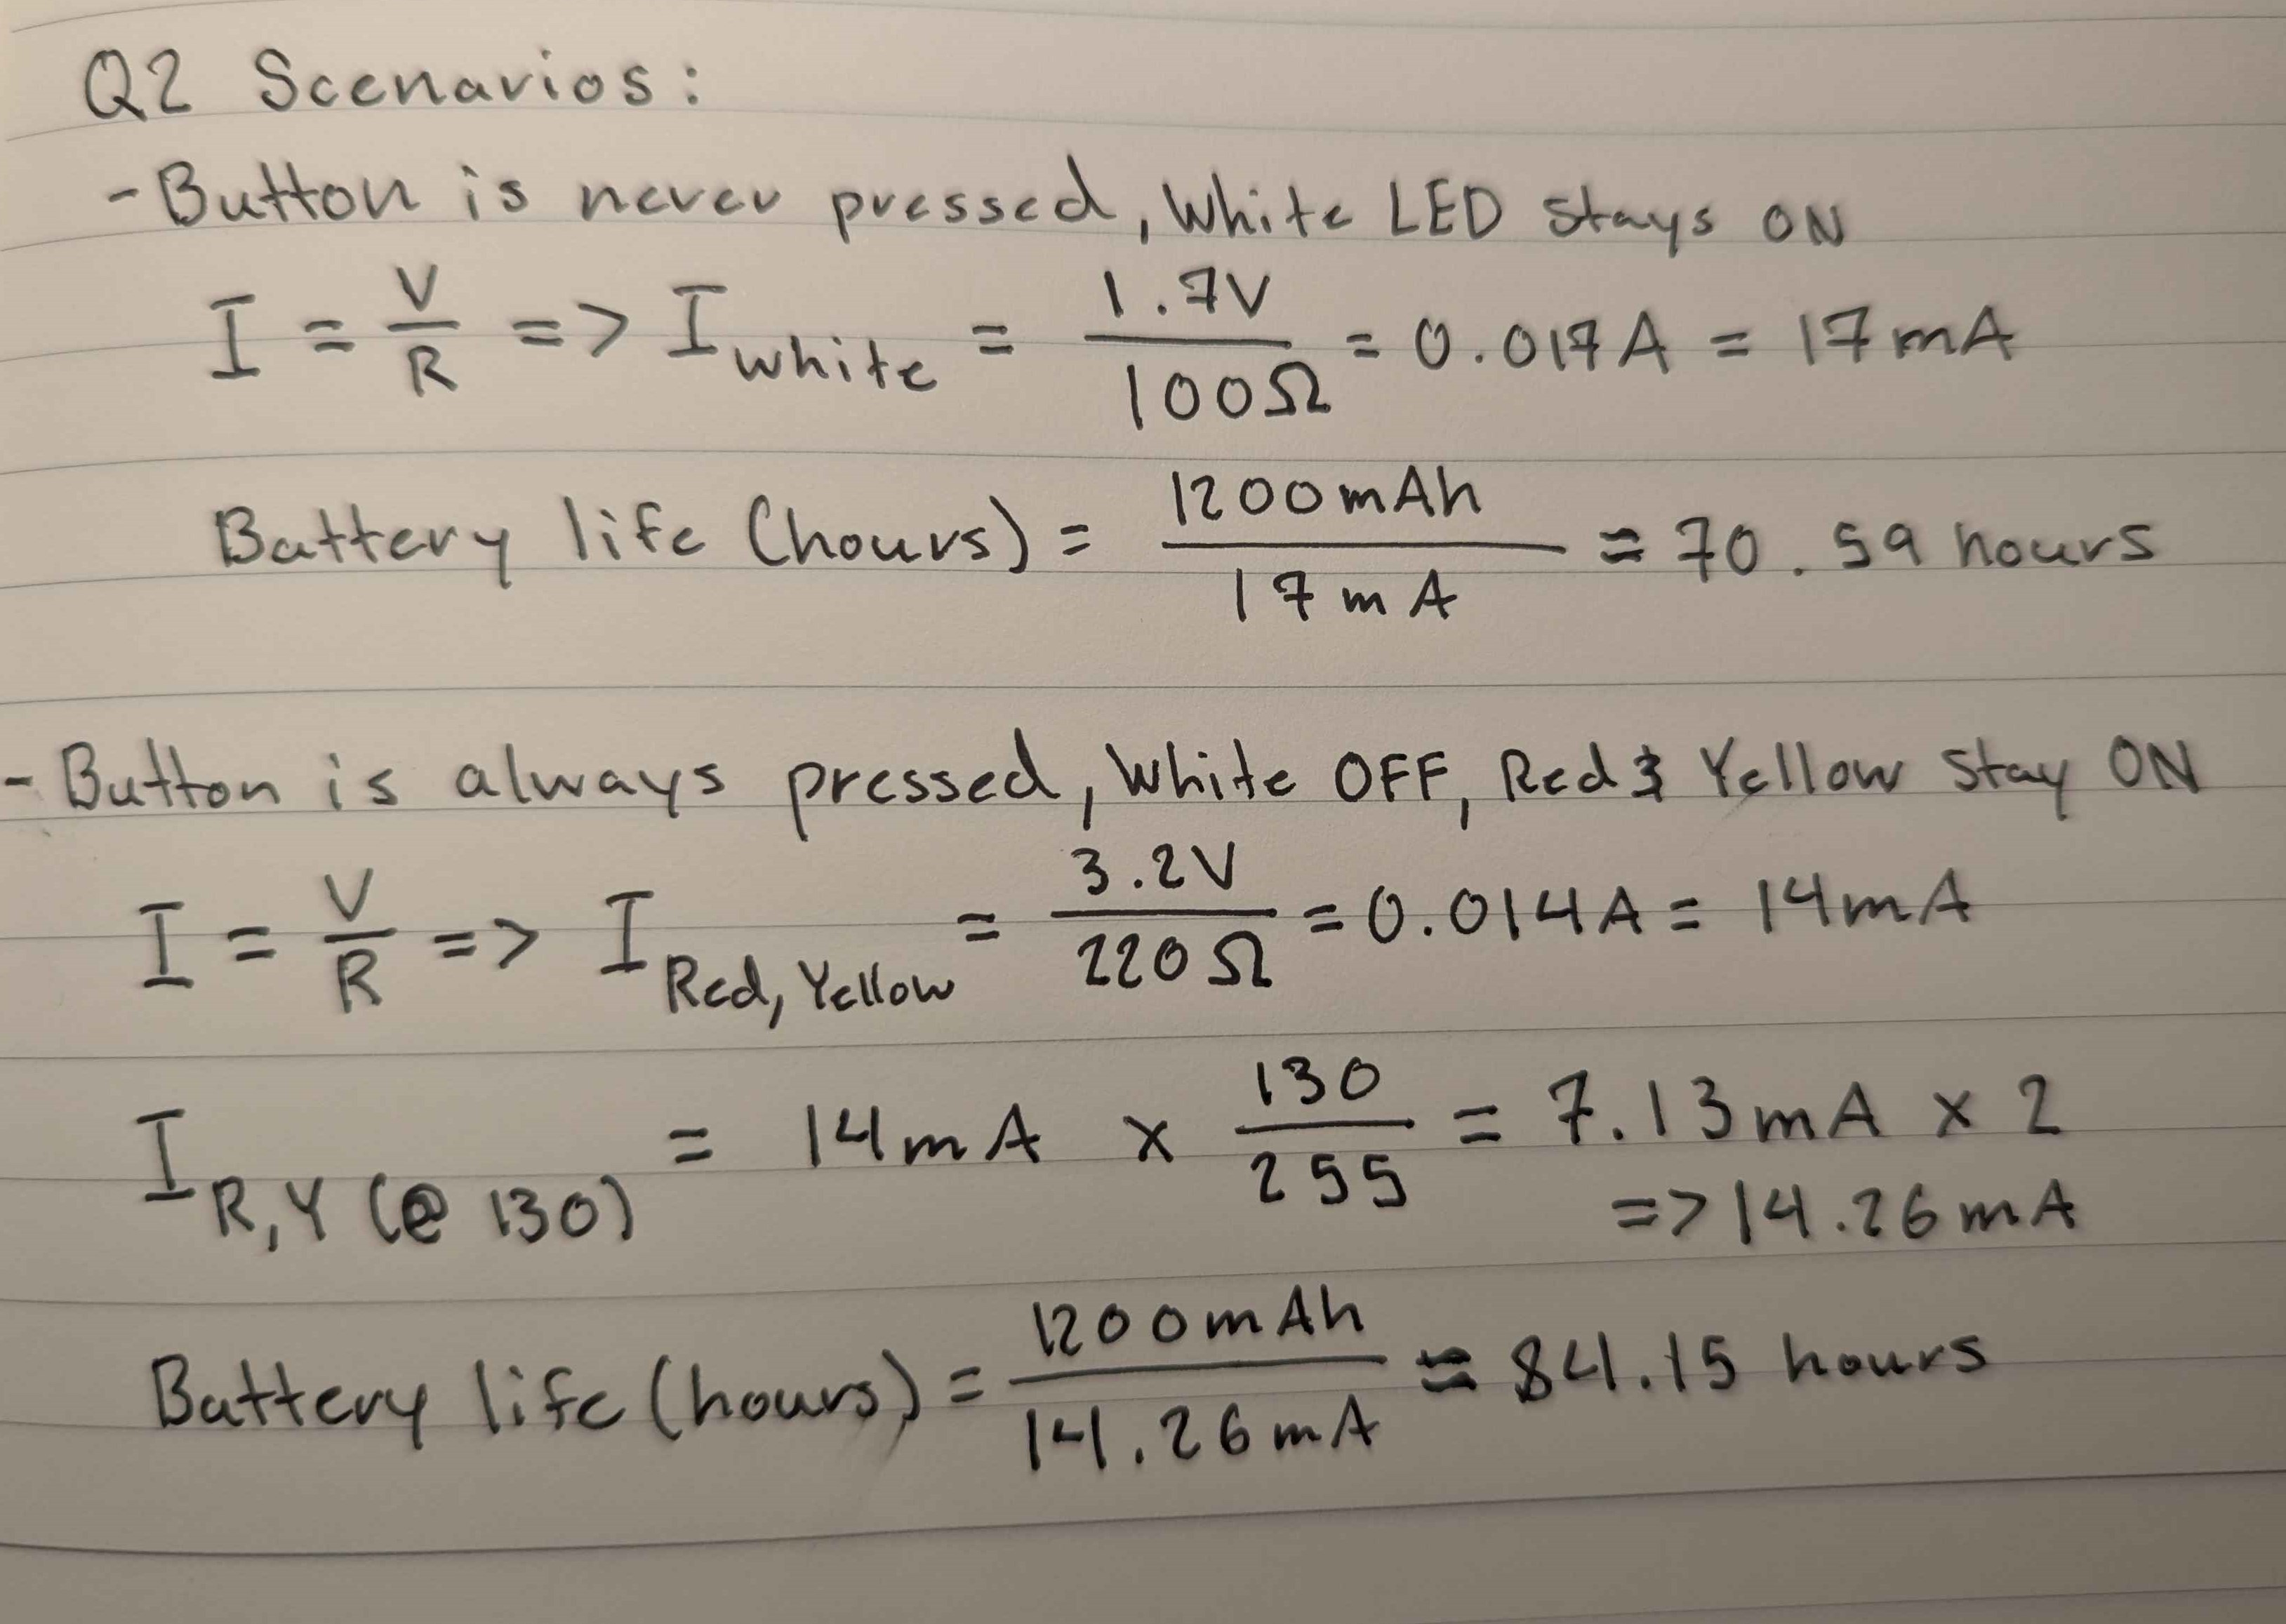 Q2 Scenarios:
- Button is never pressed, White LED stays ON
I = V/R => I white = 1.7V/100Ω = 0.017A = 17mA
Battery life (hours) = 1200mAh/17mA ≈ 70.59 hours
- Button is always pressed, White OFF, Red & Yellow stay ON
I = V/R => I Red, Yellow = 3.2V/220Ω = 0.014A = 14mA
I R,Y (@ 130) = 14mA x 130/255 = 7.13mA x 2
=> 14.26mA
Battery life (hours) = 1200mAh/14.26mA ≈ 84.15 hours